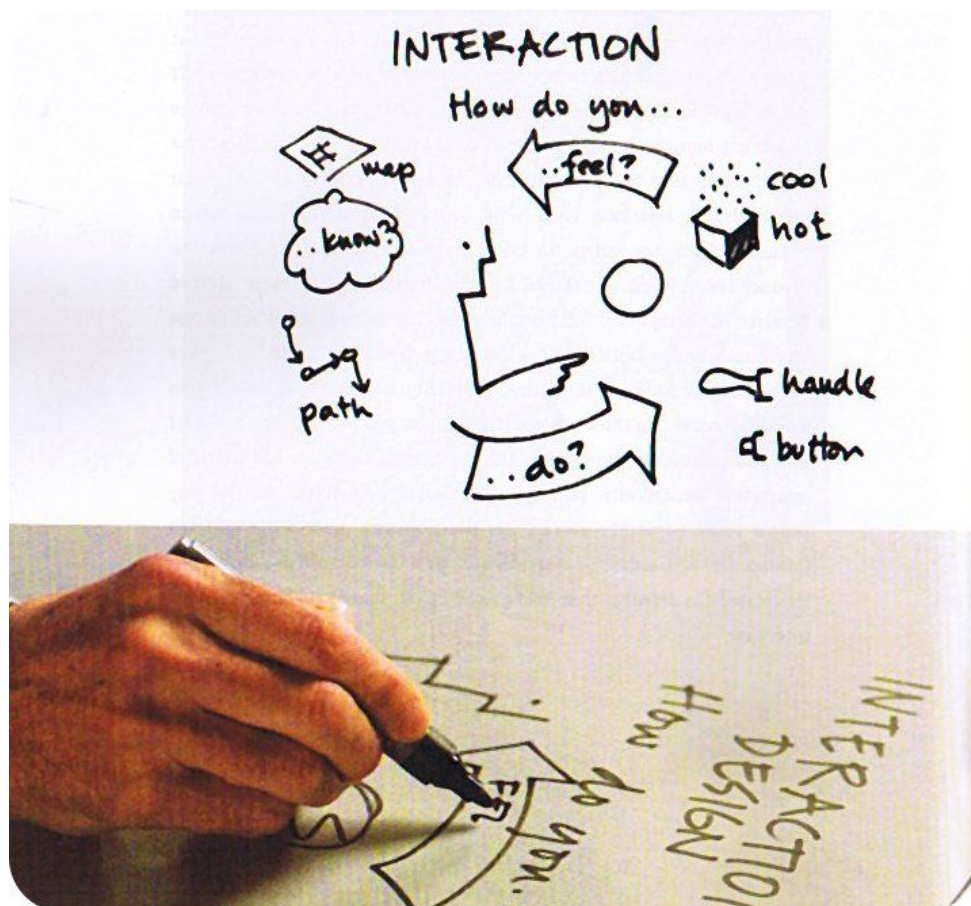 INTERACTION
How do you...
map
..feel?
cool
hot
..know?
path
handle
button
..do?
INTERACTION
DESIGN
How
do you.
FEE